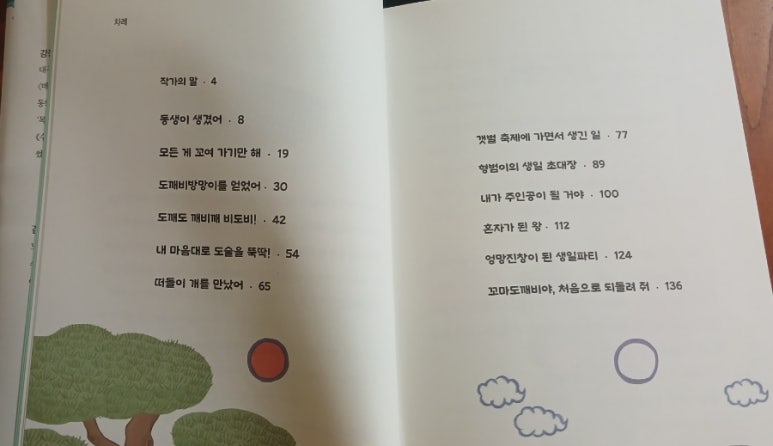 차례
작가의 말 · 4
동생이 생겼어 · 8
모든 게 꼬여 가기만 해 · 19
도깨비방망이를 얻었어 · 30
도깨도 깨비깨 비도비! · 42
내 마음대로 도술을 뚝딱! · 54
떠돌이 개를 만났어 · 65
갯벌 축제에 가면서 생긴 일 · 77
형범이의 생일 초대장 · 89
내가 주인공이 될 거야 · 100
혼자가 된 왕 · 112
엉망진창이 된 생일파티 · 124
꼬마도깨비야, 처음으로 되돌려 줘 · 136